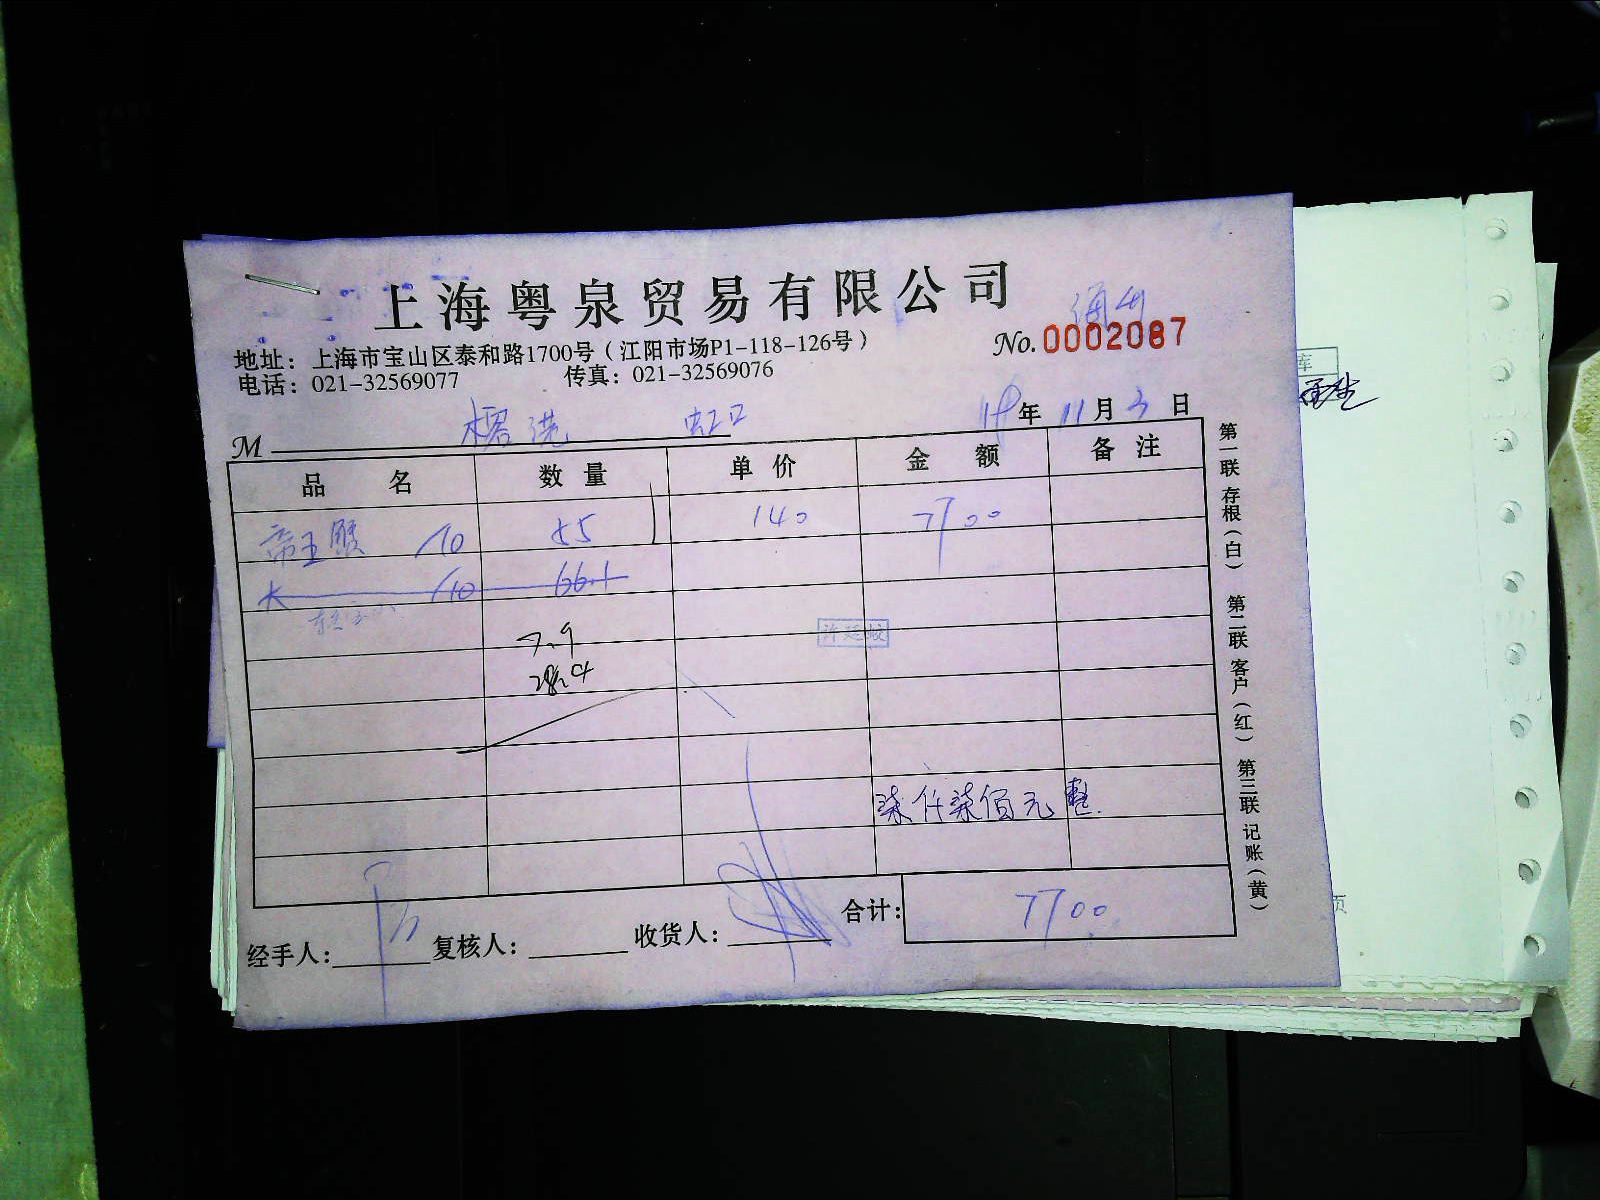 上海粤泉贸易有限公司
通州
地址：上海市宝山区泰和路1700号（江阳市场P1-118-126号）
No. 0002087
电话：021-32569077 传真：021-32569076
年 11月3日
M 虹口
品名 数量 单价 金额 备注
帝王蟹 /10 55 140 7700
大 /10 66.1
7.9
28.4
许廷
柒仟柒佰元整.
合计： 7700
经手人： 复核人： 收货人：
第一联存根（白） 第二联客户（红） 第三联记账（黄）
库
页